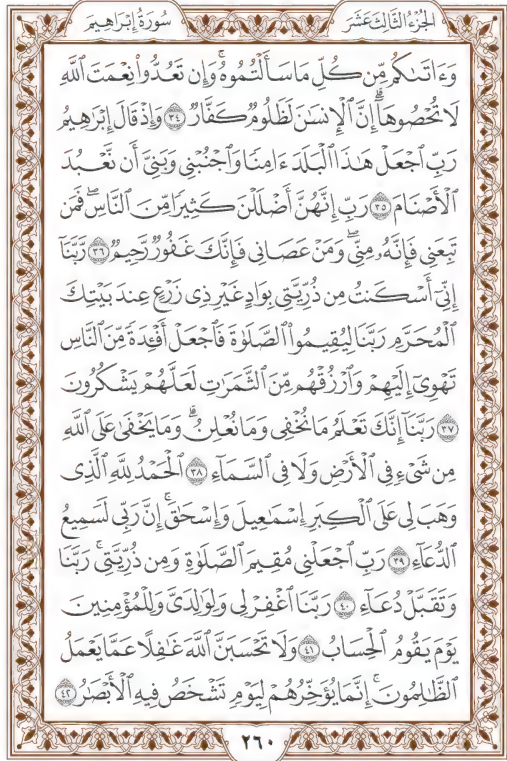 الجُزْءُ الثَّالِثَ عَشَرَ
سُورَةُ إِبْرَاهِيمَ
وَءَاتَىٰكُم مِّن كُلِّ مَا سَأَلْتُمُوهُ ۚ وَإِن تَعُدُّوا۟ نِعْمَتَ ٱللَّهِ
لَا تُحْصُوهَآ ۗ إِنَّ ٱلْإِنسَٰنَ لَظَلُومٌ كَفَّارٌ ٣٤ وَإِذْ قَالَ إِبْرَٰهِيمُ
رَبِّ ٱجْعَلْ هَٰذَا ٱلْبَلَدَ ءَامِنًا وَٱجْنُبْنِى وَبَنِىَّ أَن نَّعْبُدَ
ٱلْأَصْنَامَ ٣٥ رَبِّ إِنَّهُنَّ أَضْلَلْنَ كَثِيرًا مِّنَ ٱلنَّاسِ ۖ فَمَن
تَبِعَنِى فَإِنَّهُۥ مِنِّى ۖ وَمَنْ عَصَانِى فَإِنَّكَ غَفُورٌ رَّحِيمٌ ٣٦ رَّبَّنَآ
إِنِّىٓ أَسْكَنتُ مِن ذُرِّيَّتِى بِوَادٍ غَيْرِ ذِى زَرْعٍ عِندَ بَيْتِكَ
ٱلْمُحَرَّمِ رَبَّنَا لِيُقِيمُوا۟ ٱلصَّلَوٰةَ فَٱجْعَلْ أَفْـِٔدَةً مِّنَ ٱلنَّاسِ
تَهْوِىٓ إِلَيْهِمْ وَٱرْزُقْهُم مِّنَ ٱلثَّمَرَٰتِ لَعَلَّهُمْ يَشْكُرُونَ
٣٧ رَبَّنَآ إِنَّكَ تَعْلَمُ مَا نُخْفِى وَمَا نُعْلِنُ ۗ وَمَا يَخْفَىٰ عَلَى ٱللَّهِ
مِن شَىْءٍ فِى ٱلْأَرْضِ وَلَا فِى ٱلسَّمَآءِ ٣٨ ٱلْحَمْدُ لِلَّهِ ٱلَّذِى
وَهَبَ لِى عَلَى ٱلْكِبَرِ إِسْمَٰعِيلَ وَإِسْحَٰقَ ۚ إِنَّ رَبِّى لَسَمِيعُ
ٱلدُّعَآءِ ٣٩ رَبِّ ٱجْعَلْنِى مُقِيمَ ٱلصَّلَوٰةِ وَمِن ذُرِّيَّتِى ۚ رَبَّنَا
وَتَقَبَّلْ دُعَآءِ ٤٠ رَبَّنَا ٱغْفِرْ لِى وَلِوَٰلِدَىَّ وَلِلْمُؤْمِنِينَ
يَوْمَ يَقُومُ ٱلْحِسَابُ ٤١ وَلَا تَحْسَبَنَّ ٱللَّهَ غَٰفِلًا عَمَّا يَعْمَلُ
ٱلظَّٰلِمُونَ ۚ إِنَّمَا يُؤَخِّرُهُمْ لِيَوْمٍ تَشْخَصُ فِيهِ ٱلْأَبْصَٰرُ ٤٢
٢٦٠